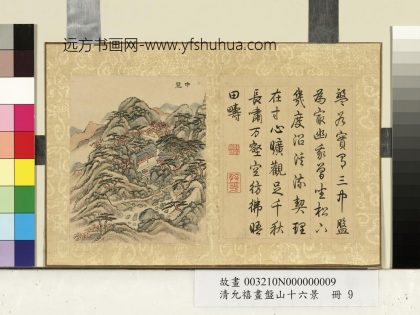 远方书画网-www.yfshuhua.com
中盤
三中盤
為幽曾坐松
幾度沿清流契理
在寸心曠觀足千秋
長嘯万壑空彷彿晤
田疇
故畫 003210N000000009
清允禧畫盤山十六景 冊 9